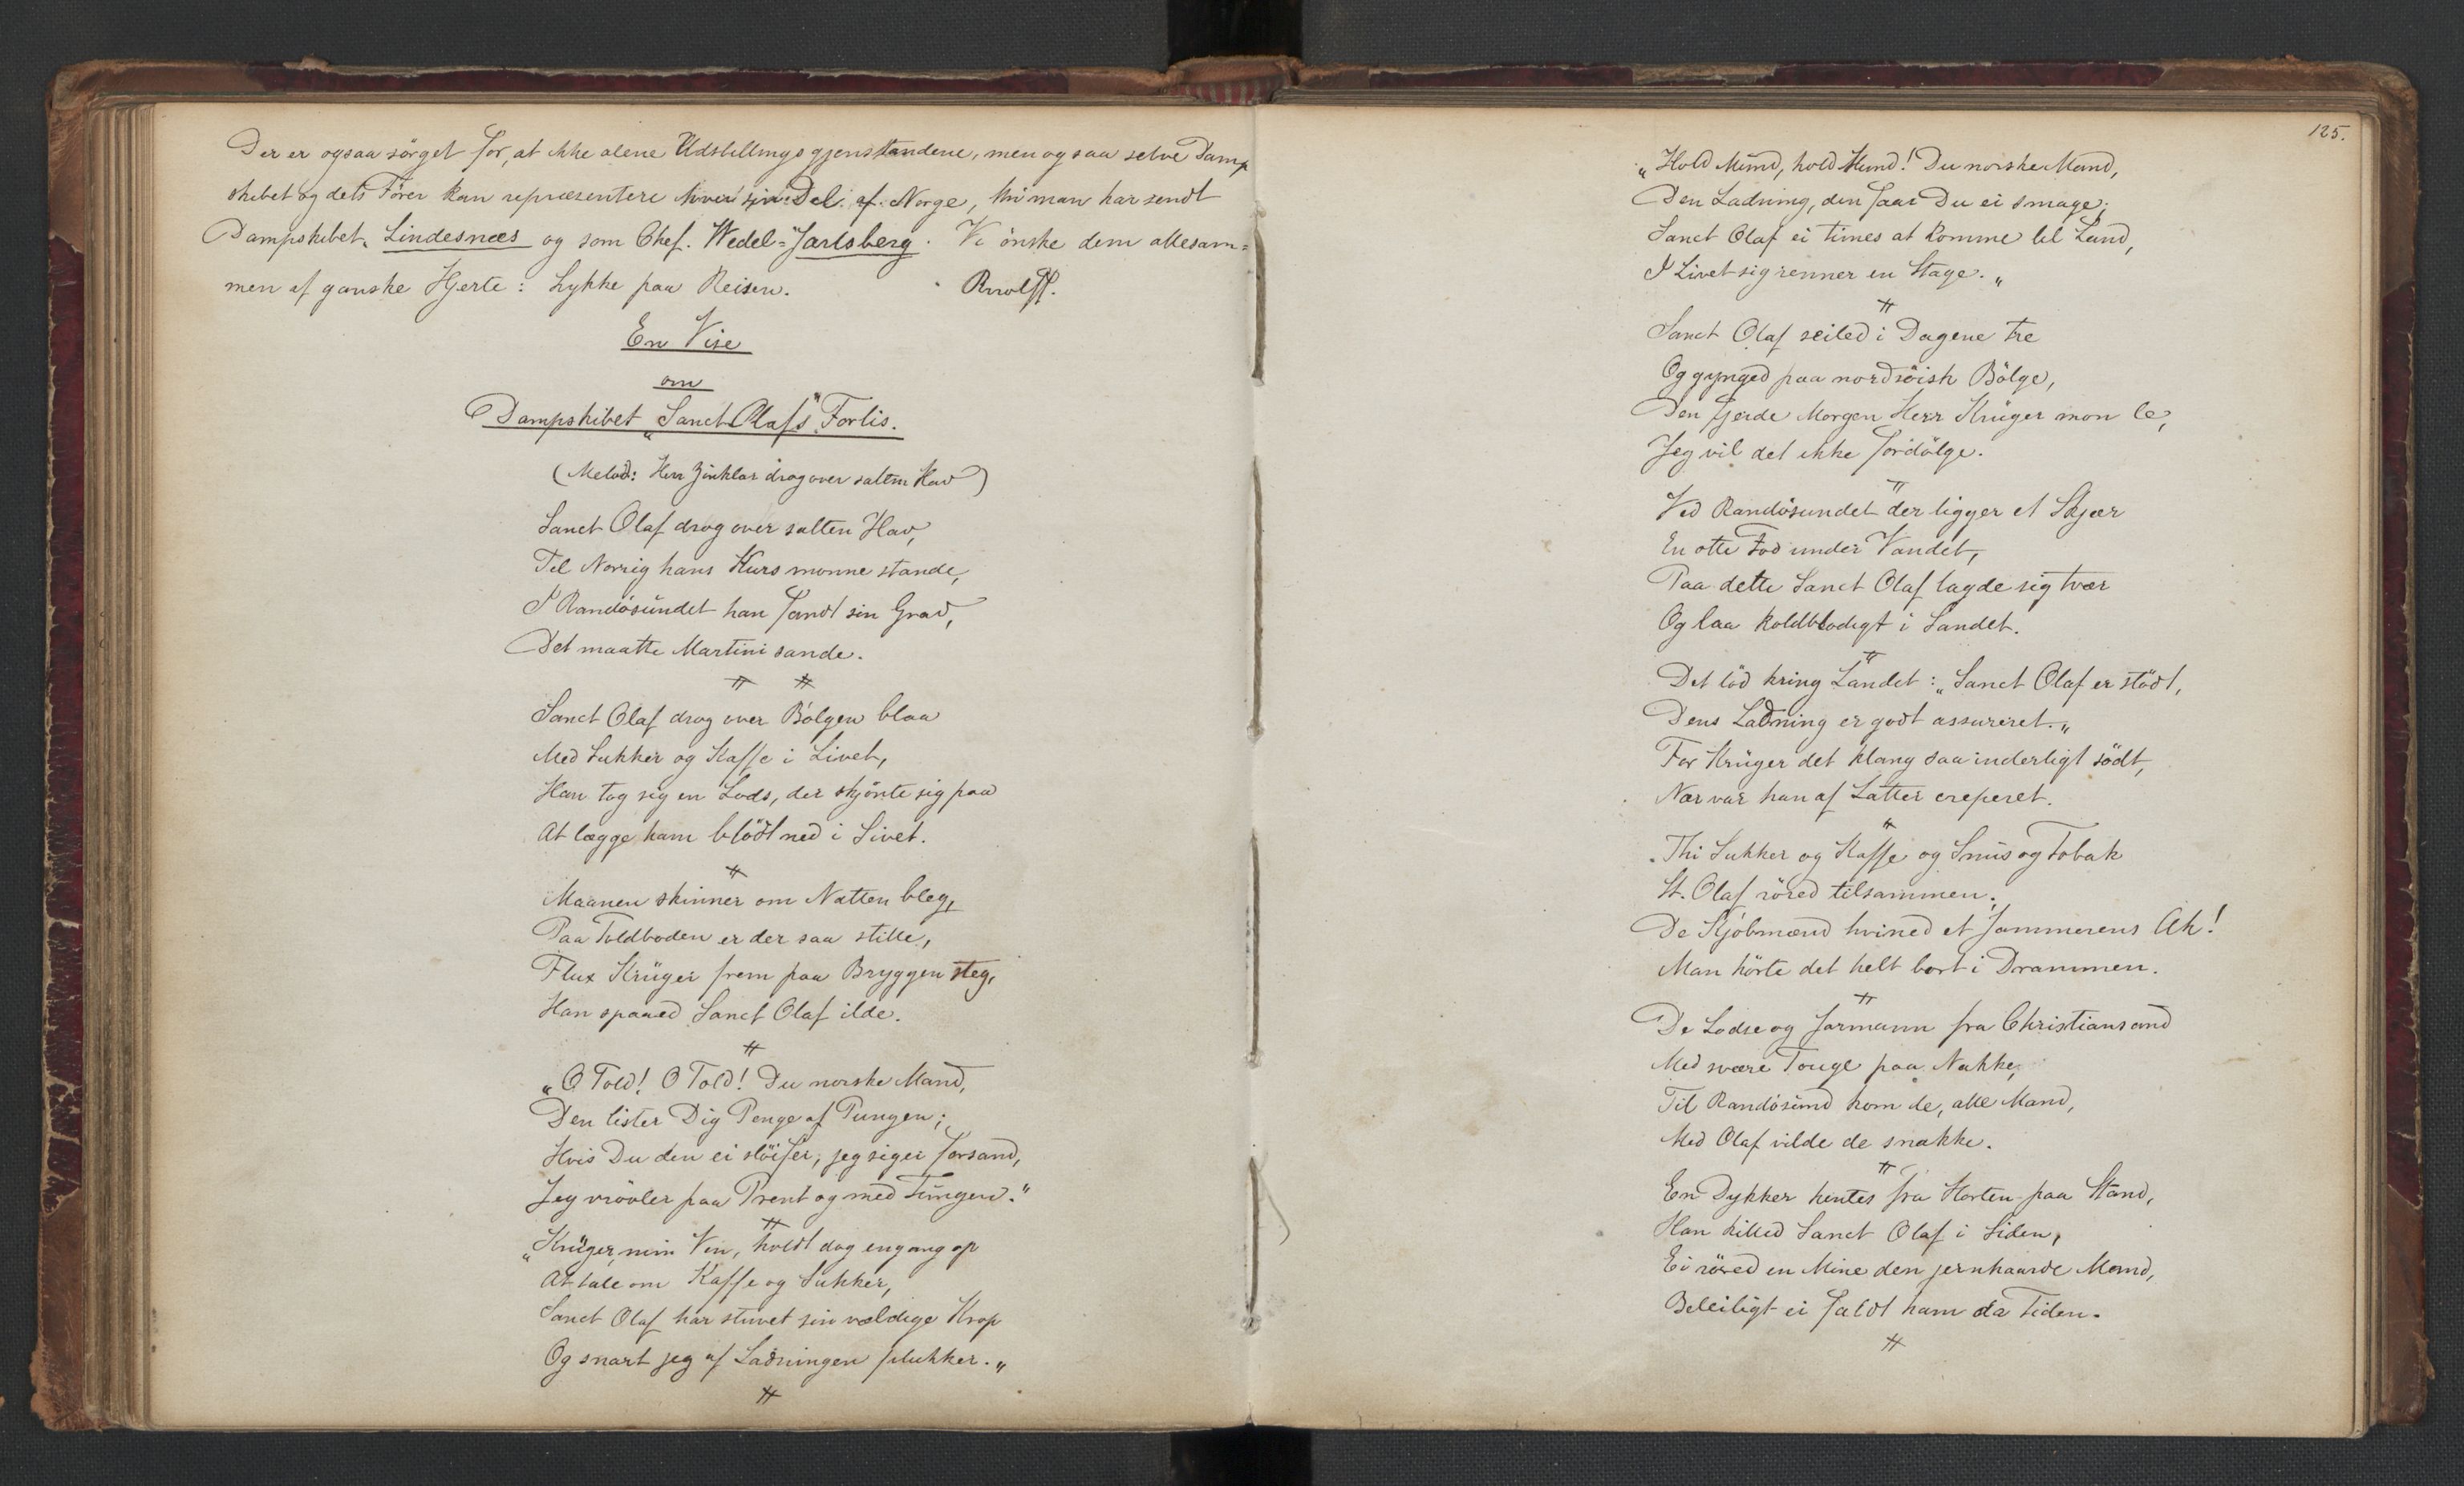 Der er ogsaa sörget for, at ikke alene Udstillingsgjenstandene, men ogsaa selve Damp
skibet og dets Förer kan repræsentere hver sin Del af Norge, thi man har sendt
Dampskibet Lindesnæs og som Chef. Wedel-Jarlsberg. Vi önske dem allesam=
men af ganske Hjerte: Lykke paa Reisen.
En Vise
om
Dampskibet „Sanct Olafs" Forlis.
(Melodi: Herr Zinklar drog over salten Hav)
Sanct Olaf drog over salten Hav,
Til Norrig hans Kurs monne stande,
I Randösundet han fandt sin Grav,
Det maatte Martini sande.
Sanct Olaf drog over Bölgen blaa
Med Sukker og Kaffe i Livet,
Han tog sig en Lods, der skjönte sig paa
At lægge ham blödt ned i Sivet.
Maanen skinner om Natten bleg,
Paa Toldboden er der saa stille,
Flux Krüger frem paa Bryggen steg,
Han spaaed Sanct Olaf ilde.
„O Told! O Told! Du norske Mand,
Den lister Dig Penge af Pungen;
Hvis Du den ei slöifer, jeg siger forsand,
Jeg vrövler paa Prent og med Tungen."
„Krüger, min Ven, holdt dog engang op
At tale om Kaffe og Sukker,
Sanct Olaf har stuvet sin vældige Krop
Og snart jeg af Ladningen plukker."
125.
„Hold Mund, hold Mund! Du norske Mand,
Den Ladning, den faar Du ei smage;
Sanct Olaf ei times at komme til Land,
I Livet sig renner en Stage."
Sanct Olaf seiled i Dagene tre
Og gynged paa nordsöisk Bölge,
Den fjerde Morgen Herr Krüger mon le,
Jeg vil det ikke fordölge.
Ved Randösundet der ligger et Skjær
En otte Fod under Vandet,
Paa dette Sanct Olaf lagde sig tvær
Og laa koldblodigt i Sandet.
Det löd kring Landet: „Sanct Olaf er stödt,
Dens Ladning er godt assureret."
For Krüger det klang saa inderligt södt,
Nær var han af Latter creperet.
Thi Sukker og Kaffe og Snus og Tobak
St. Olaf röred tilsammen;
De Kjöbmænd hvined et Jammerens Ak!
Man hörte det helt bort i Drammen.
De Lodse og Jarmann fra Christiansand
Med svære Touge paa Nakke,
Til Randösund kom de, alle Mand,
Med Olaf vilde de snakke.
En Dykker hentes fra Horten paa Stand,
Han killed Sanct Olaf i Siden,
Ei röred en Mine den jernhaarde Mand,
Beleiligt ei faldt ham da Tiden.